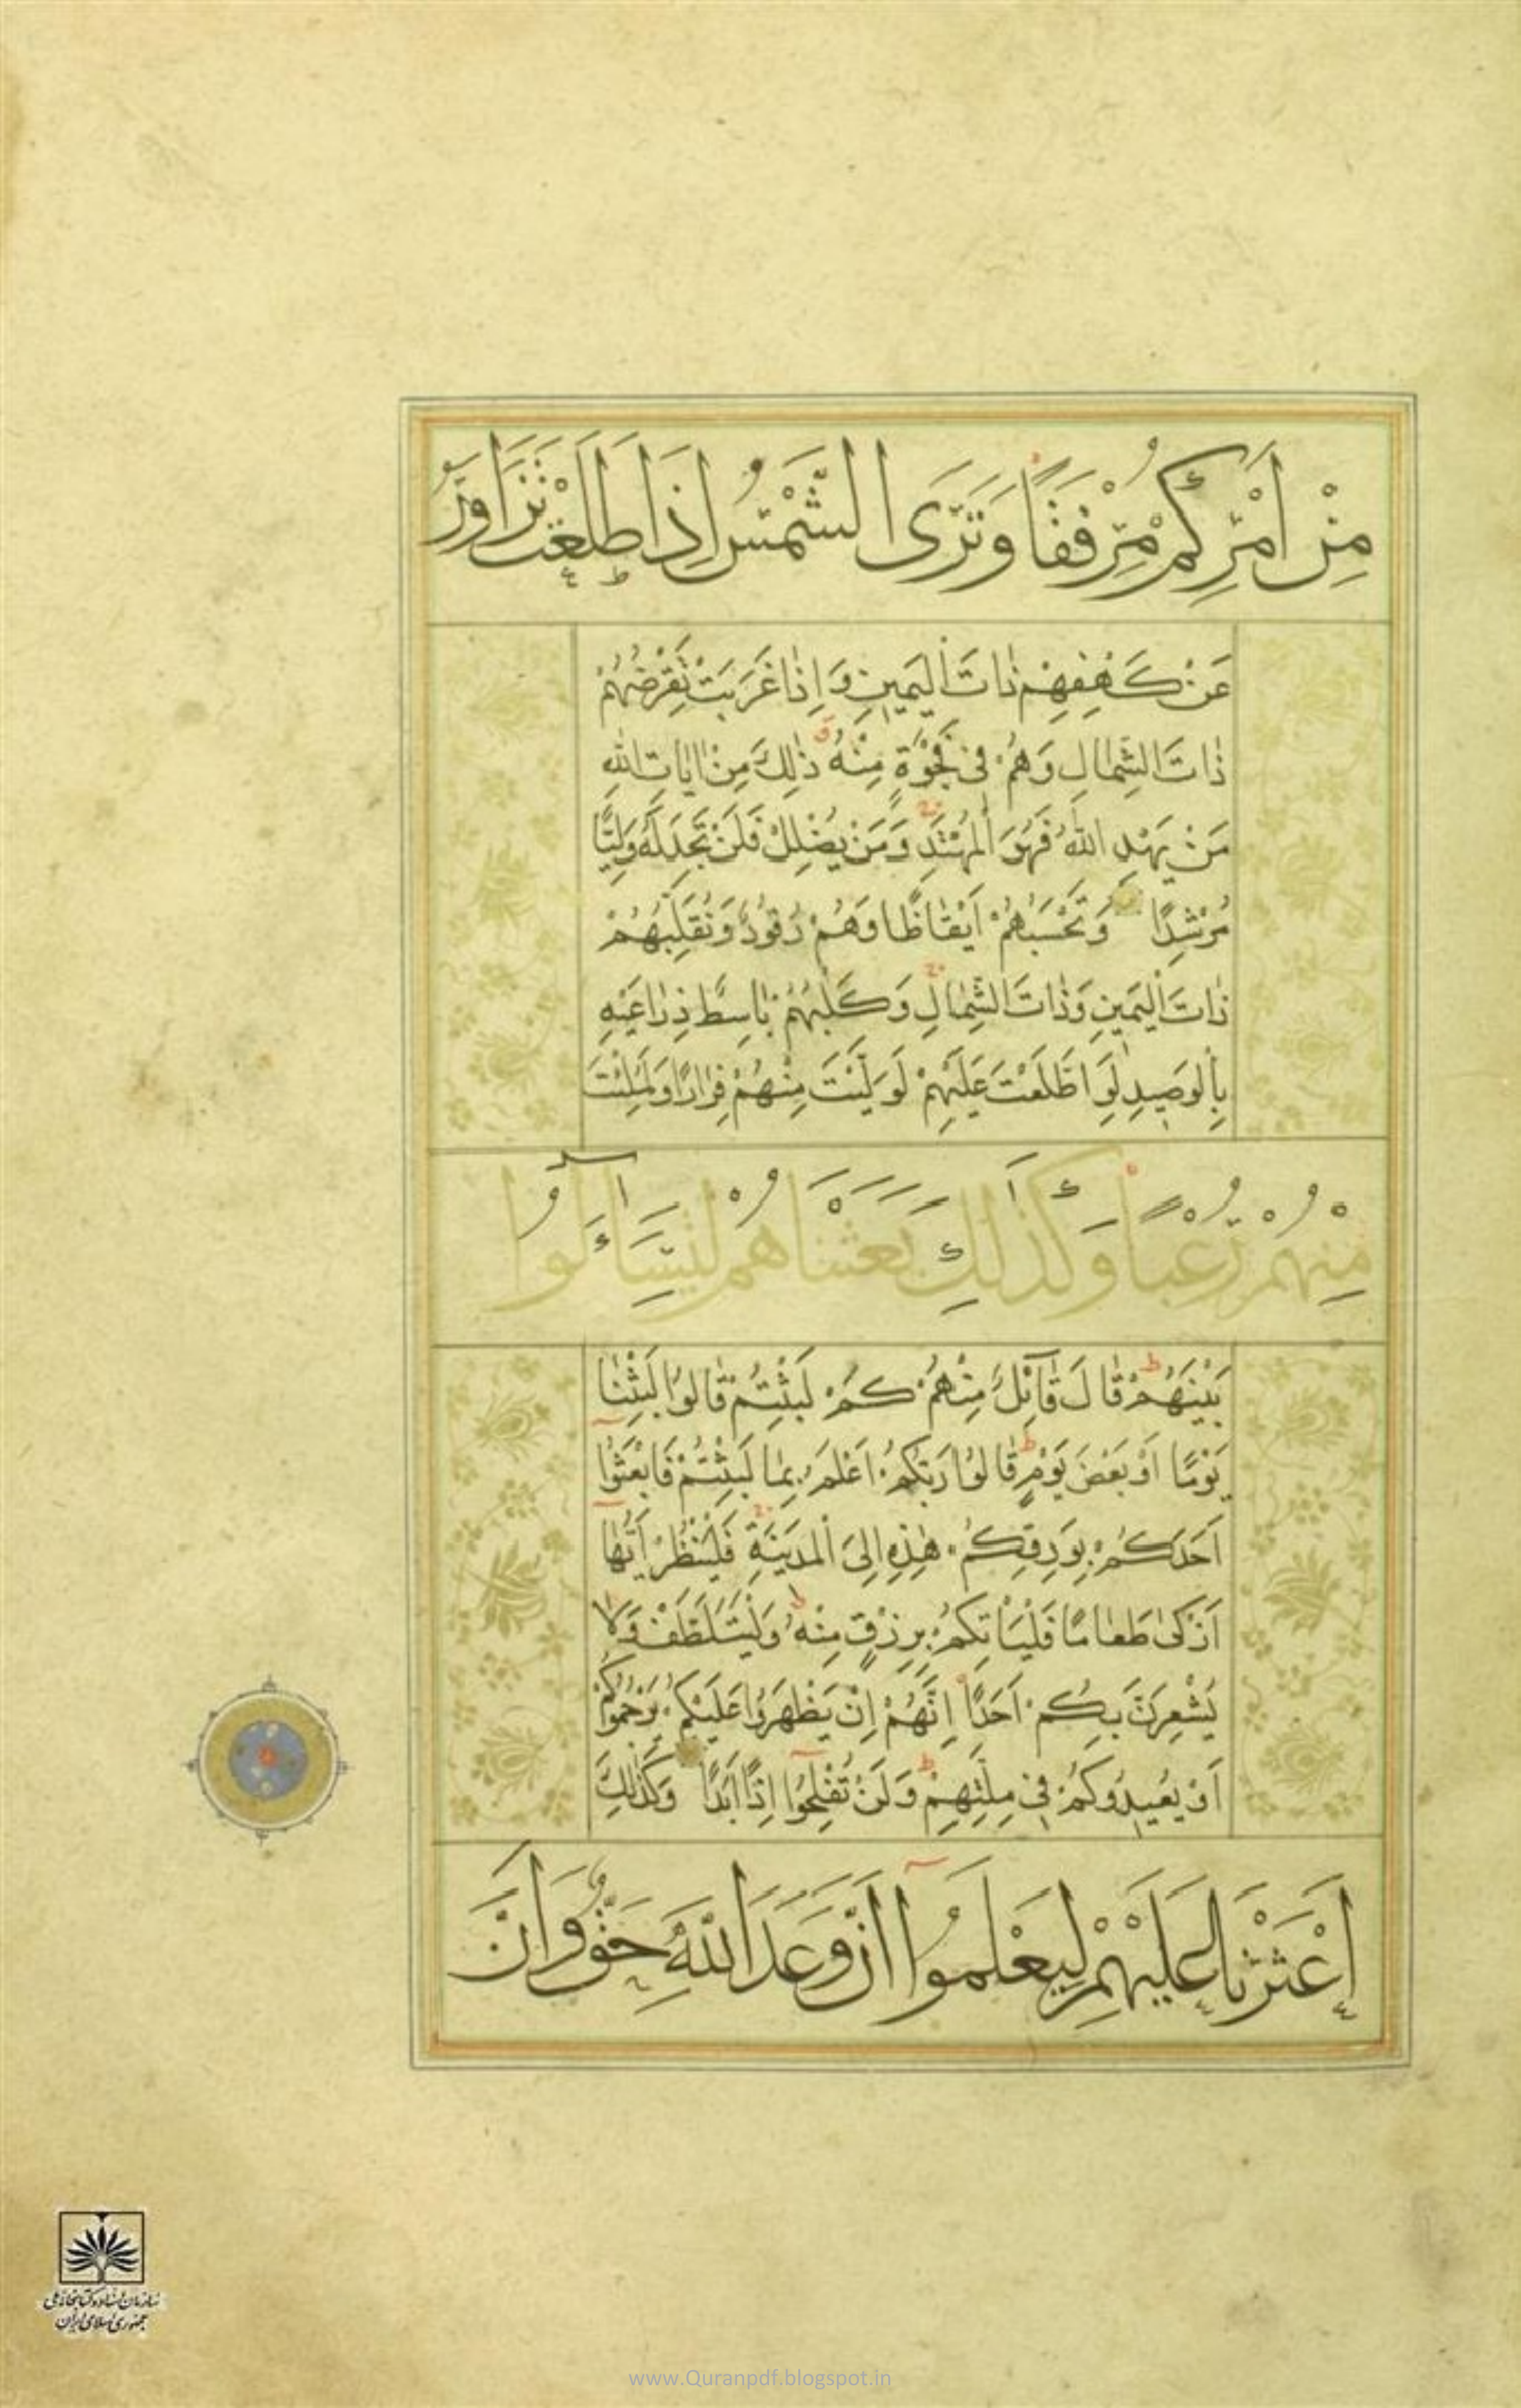 مِنْ اَمْرِكُمْ مِرْفَقًا وَتَرَى الشَّمْسَ اِذَا طَلَعَتْ تَزَاوَرُ
عَنْ كَهْفِهِمْ ذَاتَ الْيَمِينِ وَاِذَا غَرَبَتْ تَقْرِضُهُمْ
ذَاتَ الشِّمَالِ وَهُمْ فِى فَجْوَةٍ مِنْهُ ذٰلِكَ مِنْ اٰيَاتِ اللّٰهِ
مَنْ يَهْدِ اللّٰهُ فَهُوَ الْمُهْتَدِ وَمَنْ يُضْلِلْ فَلَنْ تَجِدَ لَهُ وَلِيًّا
مُرْشِدًا وَتَحْسَبُهُمْ اَيْقَاظًا وَهُمْ رُقُودٌ وَنُقَلِّبُهُمْ
ذَاتَ الْيَمِينِ وَذَاتَ الشِّمَالِ وَكَلْبُهُمْ بَاسِطٌ ذِرَاعَيْهِ
بِالْوَصِيدِ لَوِ اطَّلَعْتَ عَلَيْهِمْ لَوَلَّيْتَ مِنْهُمْ فِرَارًا وَلَمُلِئْتَ
مِنْهُمْ رُعْبًا وَكَذٰلِكَ بَعَثْنَاهُمْ لِيَتَسَاۤءَلُوا
بَيْنَهُمْ قَالَ قَاۤئِلٌ مِنْهُمْ كَمْ لَبِثْتُمْ قَالُوا لَبِثْنَا
يَوْمًا اَوْ بَعْضَ يَوْمٍ قَالُوا رَبُّكُمْ اَعْلَمُ بِمَا لَبِثْتُمْ فَابْعَثُوا
اَحَدَكُمْ بِوَرِقِكُمْ هٰذِهِ اِلَى الْمَدِينَةِ فَلْيَنْظُرْ اَيُّهَا
اَزْكٰى طَعَامًا فَلْيَاْتِكُمْ بِرِزْقٍ مِنْهُ وَلْيَتَلَطَّفْ وَلَا
يُشْعِرَنَّ بِكُمْ اَحَدًا اِنَّهُمْ اِنْ يَظْهَرُوا عَلَيْكُمْ يَرْجُمُوكُمْ
اَوْ يُعِيدُوكُمْ فِى مِلَّتِهِمْ وَلَنْ تُفْلِحُوا اِذًا اَبَدًا وَكَذٰلِكَ
اَعْثَرْنَا عَلَيْهِمْ لِيَعْلَمُوا اَنَّ وَعْدَ اللّٰهِ حَقٌّ وَاَنَّ
سازمان اسناد و کتابخانه ملی
جمهوری اسلامی ایران
www.Quranpdf.blogspot.in